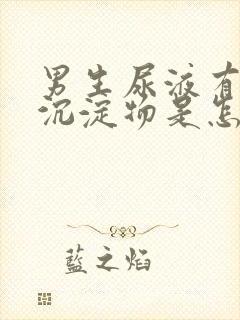 男生尿液有
沉淀物是怎
蓝之焰